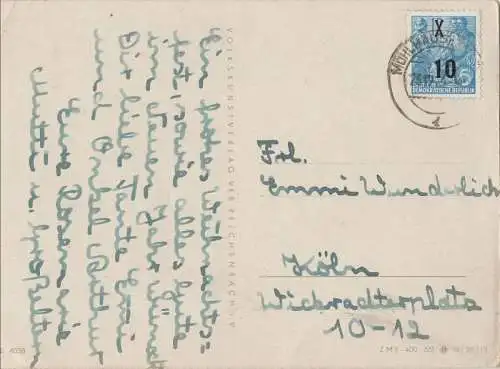 Ein frohes Weihnachts=
fest sowie alles Gute
im neuen Jahr wünscht
Dir liebe Tante Emi
und Onkel Arthur
Eure Rosemarie
Mutti u. Großeltern
VOLKSKUNSTVERLAG VEB REICHENBACH i. V.
X
10
DEMOKRATISCHE REPUBLIK
MÜHLHAUSEN
Frl.
Emmi Wunderlich
Köln
Wickradterplatz
10-12